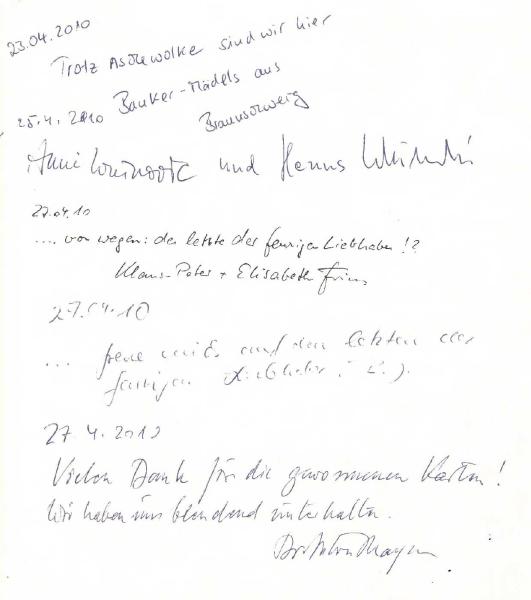 23.04.2010
Trotz Aschewolke sind wir hier
Banker-Mädels aus
Braunschweig
25.4.2010
und Hanns
27.04.10
.... von wegen: der letzte der feurigen Liebhaber!?
Klaus-Peter + Elisabeth
27.04.10
... freue mich auf den letzten der
feurigen Liebhaber
27.4.2010
Vielen Dank für die gewonnenen Karten!
Wir haben uns blendend unterhalten.